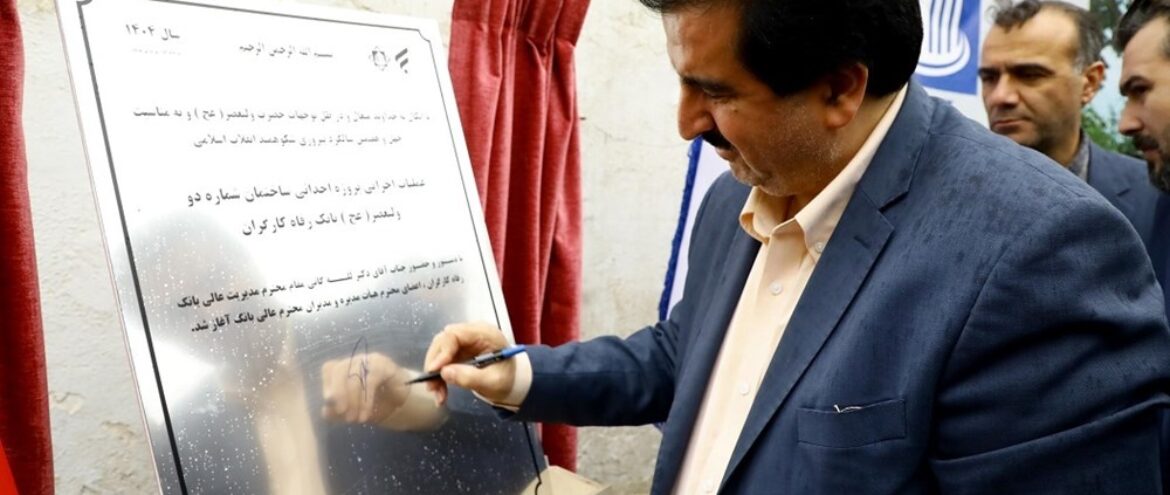 سال ۱۴۰۴
بسم الله الرحمن الرحیم
با اتکال به خداوند متعال و در ظل توجهات حضرت ولیعصر ( عج ) و به مناسبت
چهل و هفتمین سالگرد پیروزی شکوهمند انقلاب اسلامی
عملیات اجرایی پروژه احداثی ساختمان شماره دو
ولیعصر ( عج ) بانک رفاه کارگران
با دستور و حضور جناب آقای دکتر لله گانی مقام محترم مدیریت عالی بانک
رفاه کارگران ، اعضای محترم هیأت مدیره و مدیران محترم عالی بانک آغاز شد.